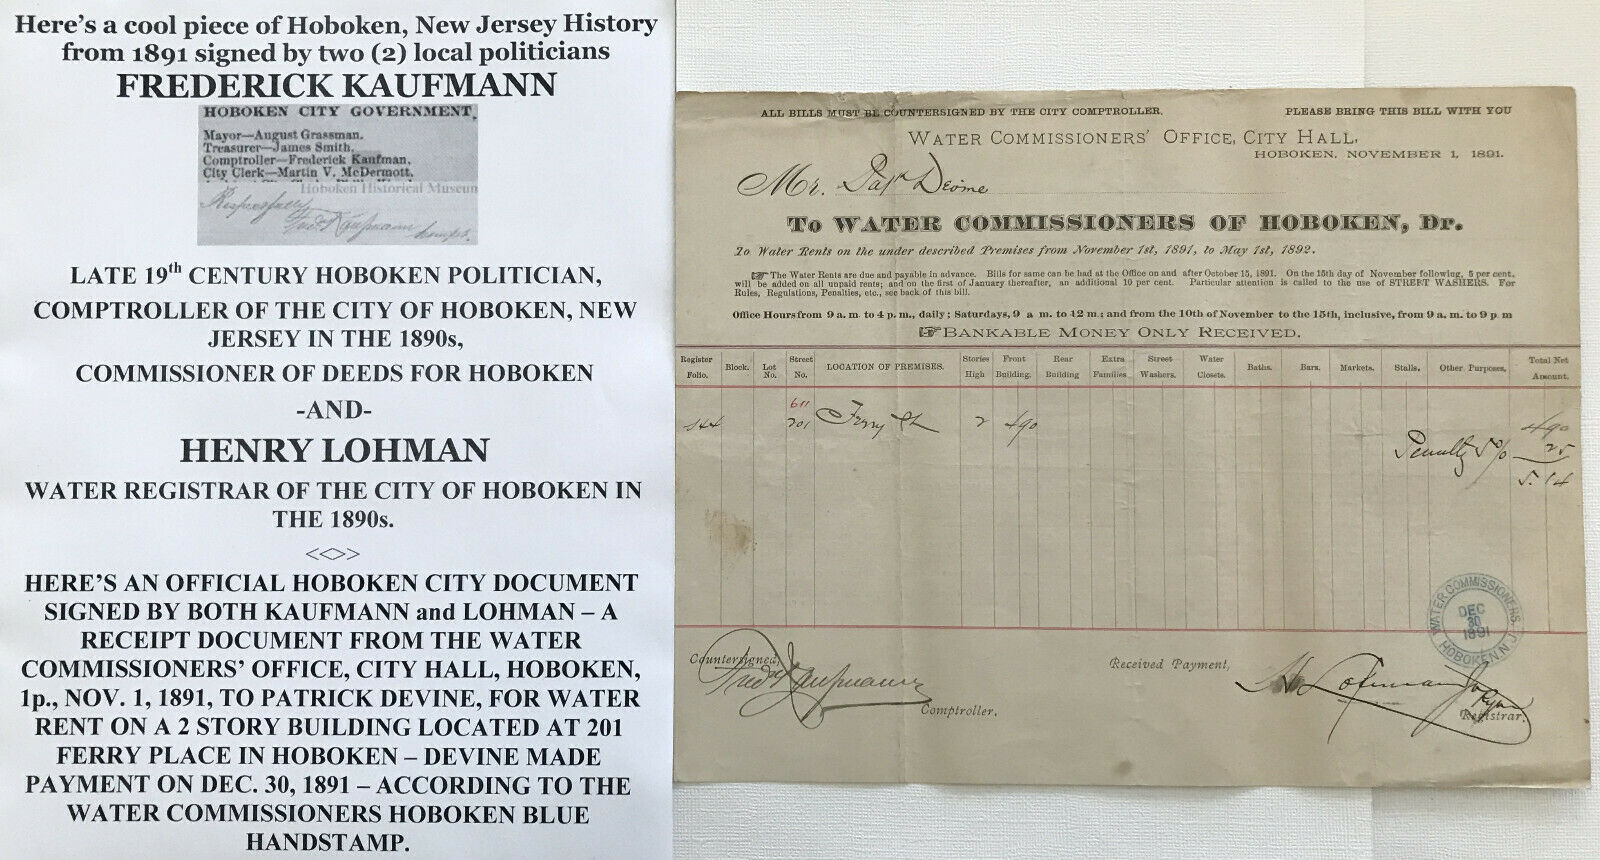 Here's a cool piece of Hoboken, New Jersey History
from 1891 signed by two (2) local politicians
FREDERICK KAUFMANN
HOBOKEN CITY GOVERNMENT.
Mayor—August Grassman.
Treasurer—James Smith.
Comptroller—Frederick Kaufman.
City Clerk—Martin V. McDermott.
Hoboken Historical Museum
Respectfully
Fredk Kaufmann
Compt.
LATE 19th CENTURY HOBOKEN POLITICIAN,
COMPTROLLER OF THE CITY OF HOBOKEN, NEW
JERSEY IN THE 1890s,
COMMISSIONER OF DEEDS FOR HOBOKEN
-AND-
HENRY LOHMAN
WATER REGISTRAR OF THE CITY OF HOBOKEN IN
THE 1890s.
<<>>
HERE'S AN OFFICIAL HOBOKEN CITY DOCUMENT
SIGNED BY BOTH KAUFMANN and LOHMAN – A
RECEIPT DOCUMENT FROM THE WATER
COMMISSIONERS' OFFICE, CITY HALL, HOBOKEN,
1p., NOV. 1, 1891, TO PATRICK DEVINE, FOR WATER
RENT ON A 2 STORY BUILDING LOCATED AT 201
FERRY PLACE IN HOBOKEN – DEVINE MADE
PAYMENT ON DEC. 30, 1891 – ACCORDING TO THE
WATER COMMISSIONERS HOBOKEN BLUE
HANDSTAMP.
ALL BILLS MUST BE COUNTERSIGNED BY THE CITY COMPTROLLER. PLEASE BRING THIS BILL WITH YOU
WATER COMMISSIONERS' OFFICE, CITY HALL,
HOBOKEN, NOVEMBER 1, 1891.
Mr. Patk Devine
To WATER COMMISSIONERS OF HOBOKEN, Dr.
To Water Rents on the under described Premises from November 1st, 1891, to May 1st, 1892.
☞ The Water Rents are due and payable in advance. Bills for same can be had at the Office on and after October 15, 1891. On the 15th day of November following, 5 per cent.
will be added on all unpaid rents; and on the first of January thereafter, an additional 10 per cent. Particular attention is called to the use of STREET WASHERS. For
Rules, Regulations, Penalties, etc., see back of this bill.
Office Hours from 9 a. m. to 4 p. m., daily; Saturdays, 9 a m. to 12 m.; and from the 10th of November to the 15th, inclusive, from 9 a. m. to 9 p m
☞ BANKABLE MONEY ONLY RECEIVED.
Register Folio. Block. Lot No. Street No. LOCATION OF PREMISES. Stories High Front Building. Rear Building Extra Families. Street Washers. Water Closets. Baths. Bars. Markets. Stalls. Other Purposes, Total Net Amount.
611
144 201 Ferry St 2 4 90 4 90
Penalty 5% 25
5.14
WATER COMMISSIONERS.
DEC
30
1891
HOBOKEN, N.J.
Countersigned,
Fredk Kaufmann
Comptroller.
Received Payment,
H. Lohman
Registrar.